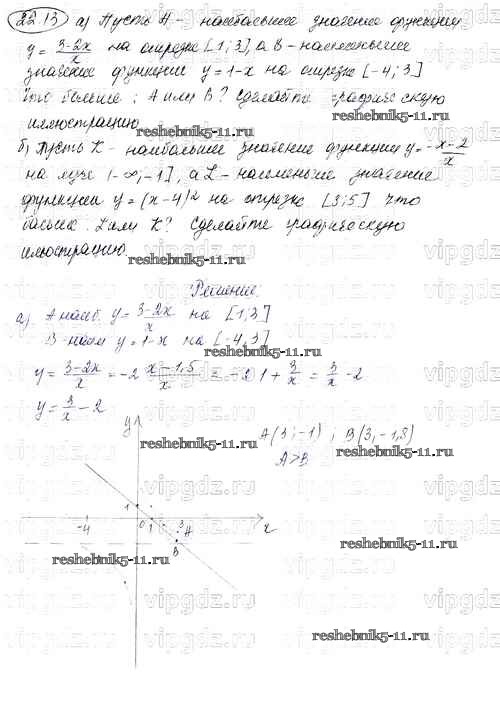 22.13 а) Пусть А - наибольшее значение функции
y = 3-2x/x на отрезке [1;3], а В - наименьшее
значение функции y = 1-x на отрезке [-4;3]
Что больше: А или В? Сделайте графическую
иллюстрацию
reshebnik5-11.ru
б) Пусть К - наибольшее значение функции y = -x-2/x
на луче (-∞;-1], а L - наименьшее значение
функции y = (x-4)² на отрезке [3;5] Что
больше: L или К? Сделайте графическую
иллюстрацию
reshebnik5-11.ru
Решение.
а) А наиб. y = 3-2x/x на [1;3]
В наим y = 1-x на [-4,3]
reshebnik5-11.ru
y = 3-2x/x = -2 x-1,5/x = -2 1 + 3/x = 3/x - 2
y = 3/x - 2
y
A(3;-1); B(3,-1,8)
reshebnik5-11.ru
reshebnik5-11.ru
A>B
1
-4 0 1 3 x
A
B
reshebnik5-11.ru
reshebnik5-11.ru
reshebnik5-11.ru
vipgdz.ru